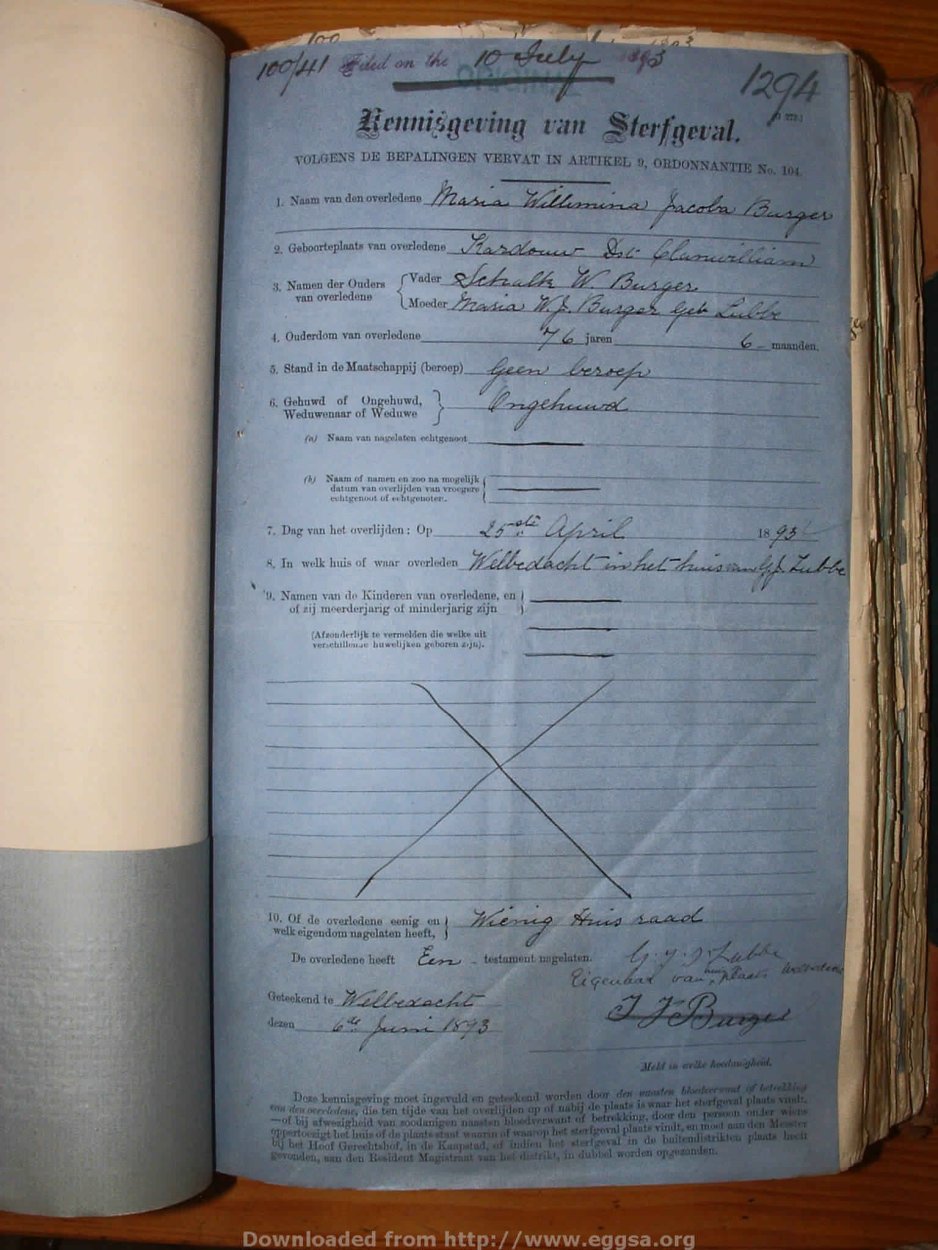 100/41 Filed on the 10 July 1893
ORIGINAL
1294
Kennisgeving van Sterfgeval.
VOLGENS DE BEPALINGEN VERVAT IN ARTIKEL 9, ORDONNANTIE No. 104.
1. Naam van den overledene Maria Willimina Jacoba Burger
2. Geboorteplaats van overledene Kardouw Dst Clanwilliam
3. Namen der Ouders van overledene { Vader Schalk W. Burger
Moeder Maria W. J. Burger geb Lubbe
4. Ouderdom van overledene 76 jaren 6 maanden.
5. Stand in de Maatschappij (beroep) Geen beroep
6. Gehuwd of Ongehuwd, Weduwenaar of Weduwe } Ongehuwd
(a) Naam van nagelaten echtgenoot
(b) Naam of namen en zoo na mogelijk
datum van overlijden van vroegere
echtgenoot of echtgenoten.
7. Dag van het overlijden: Op 25ste April 1893
8. In welk huis of waar overleden Welbedacht in het huis van G. J. Lubbe
9. Namen van de Kinderen van overledene, en
of zij meerderjarig of minderjarig zijn
(Afzonderlijk te vermelden die welke uit
verschillende huwelijken geboren zijn).
10. Of de overledene eenig en
welk eigendom nagelaten heeft, } Wienig Huis raad
De overledene heeft Een testament nagelaten. G. J. J. Lubbe
Eigenaar van plaats
Geteekend te Welbedacht
dezen 6de Juni 1893 J J Burger
Meld in welke hoedanigheid.
Deze kennisgeving moet ingevuld en geteekend worden door den naasten bloedverwant of betrekking
van den overledene, die ten tijde van het overlijden op of nabij de plaats is waar het sterfgeval plaats vindt,
—of bij afwezigheid van zoodanigen naasten bloedverwant of betrekking, door den persoon onder wiens
oppertoezigt het huis of de plaats staat waarin of waarop het sterfgeval plaats vindt, en moet aan den Meester
bij het Hoof Gerechtshof, in de Kaapstad, of indien het sterfgeval in de buitendistrikten plaats heeft
gevonden, aan den Resident Magistraat van het distrikt, in dubbel worden opgezonden.
Downloaded from http://www.eggsa.org